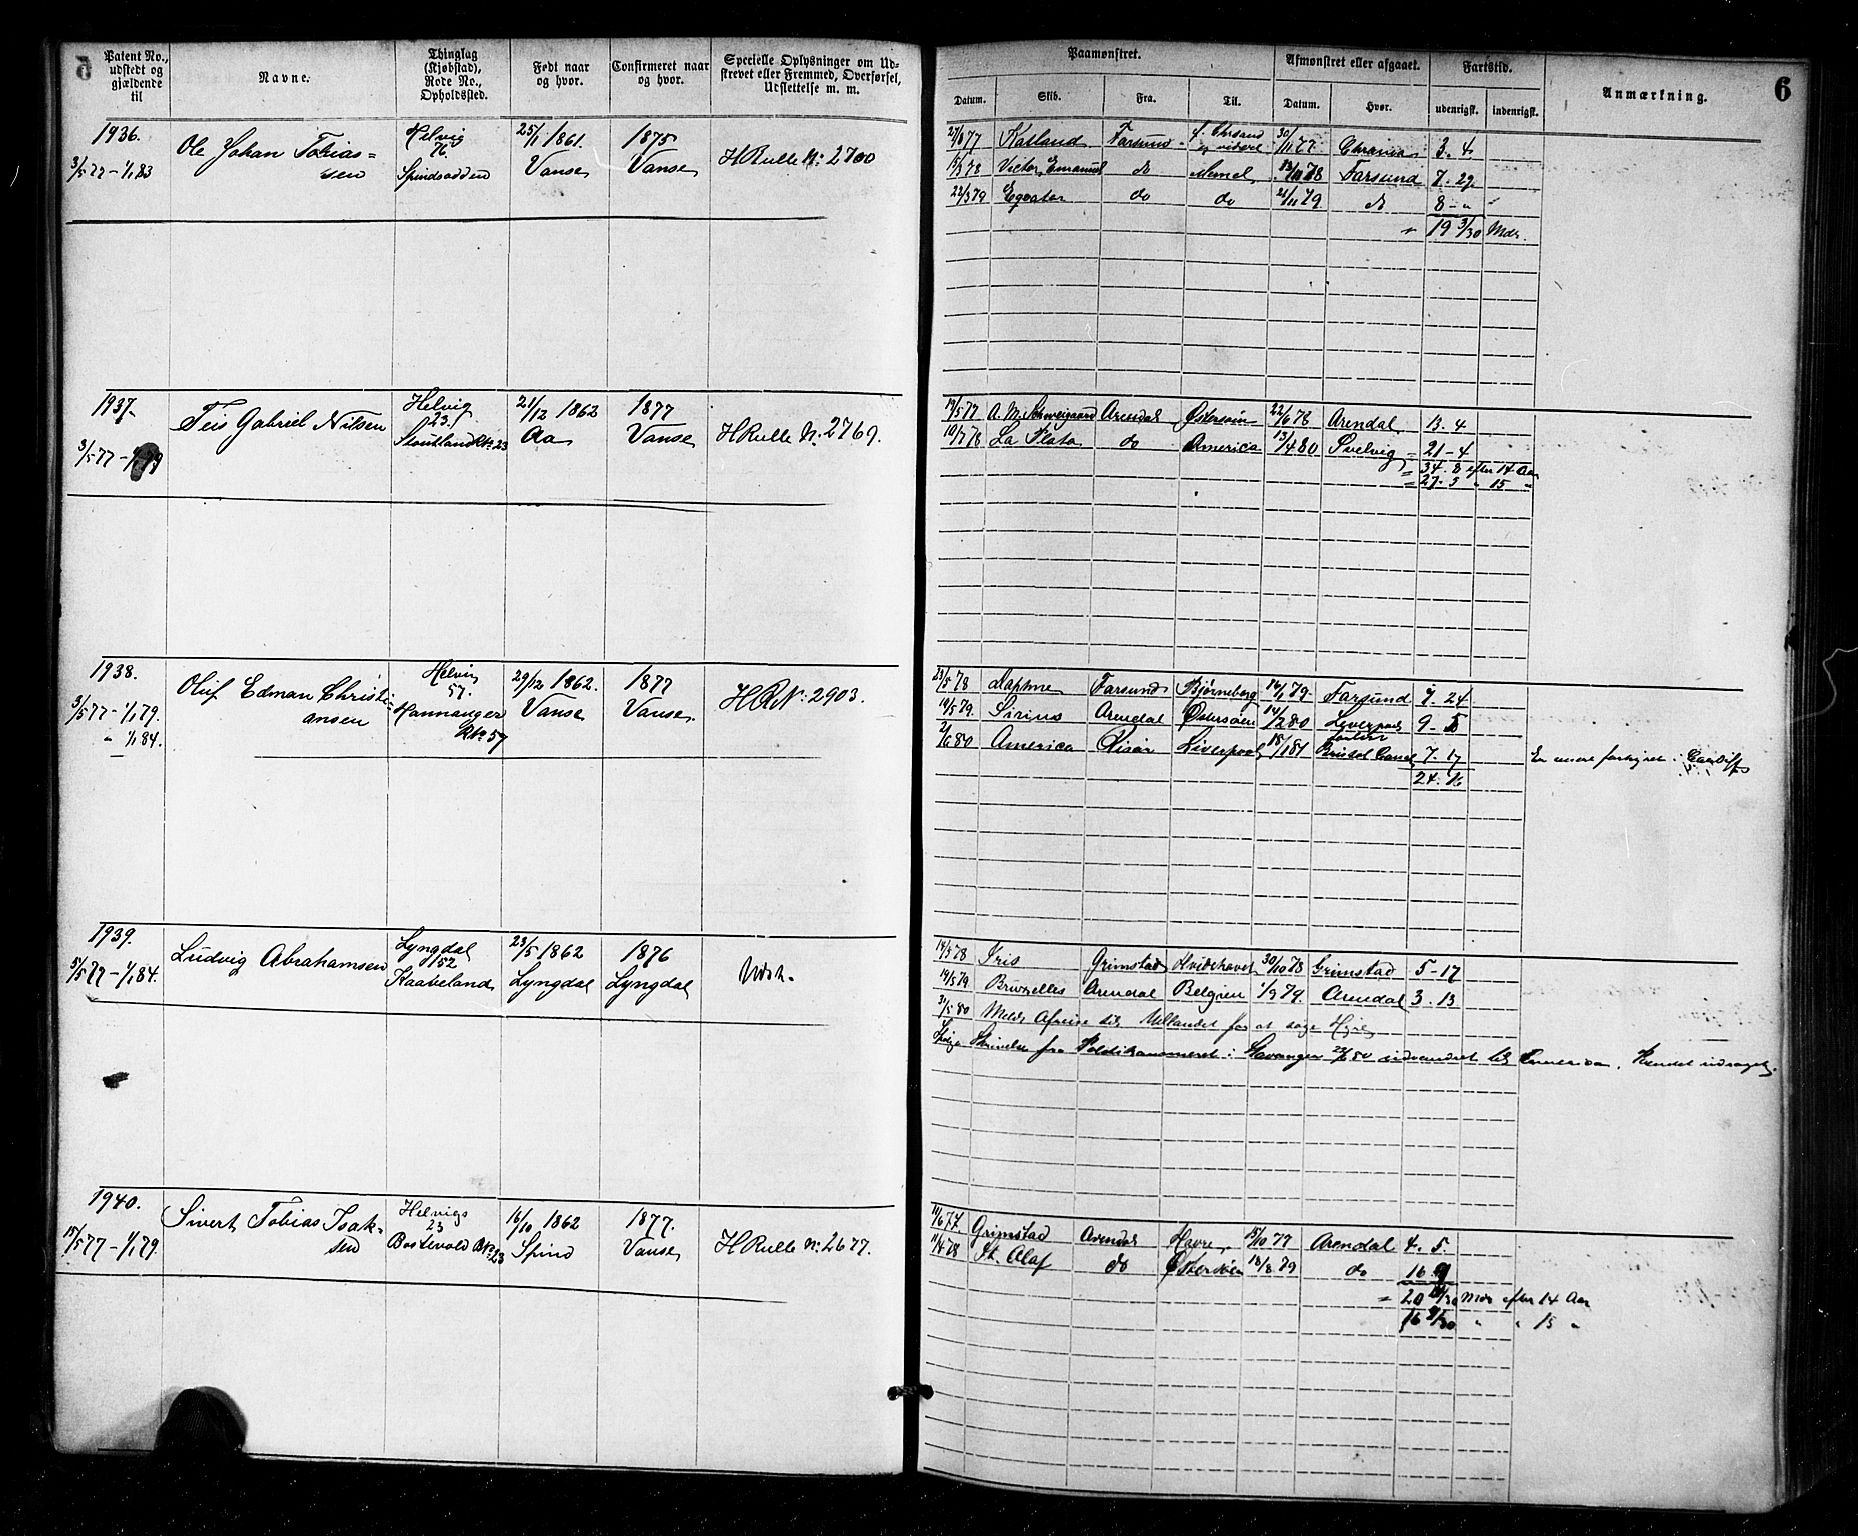 6
Patent No., udstedt og gjældende til
Navne.
Thinglag (Kjøbstad), Rode No., Opholdssted.
Født naar og hvor.
Confirmeret naar og hvor.
Specielle Oplysninger om Udstrevet eller Fremmed, Overførsel, Udslettelse m. m.
Paamønstret.
Datum.
Skib.
Fra.
Til.
Afmønstret eller afgaaet.
Datum.
Hvor.
Fartstid.
udenrigst.
indenrigst.
Anmærkning.
6
1936.
3/5 77 - 1/1 83
Ole Johan Tobias=
sen
Helvig
76.
Spindsodden
25/1 1861.
Vanse
1875
Vanse
H Rulle N: 2700
Katland Farsund 30/11 77 Chrania 3. 4
Victor Emanuel do Memel 78 Farsund 7. 29.
22/3 79 Eqvator do do 21/11 79. do 8 - "
" 19 3/30 Mdr.
1937.
3/5 77
Teis Gabriel Nilsen
Helvig
23.
No 23
21/12 1862
Aa
1877
Vanse
H Rulle N: 2769.
19/5 77 A. M. Schweigaard Arendal Østersøen 22/6 78 Arendal 13. 4
19/7 78 La Plata do America 13/4 80 Svelvig 21 - 4
= 34. 8 efter 14 Aar
= 27. 3 " 15 "
1938.
3/5 77 - 1/1 79.
" 1/1 84.
Oluf Edman Christi=
ansen
Helvig
57.
Hannanger
No 57
29/12 1862.
Vanse
1877
Vanse.
H R N: 2903.
23/5 78 Daphne Farsund Bjørneborg 16/1 79 Farsund 7. 24
19/5 79. Sirius Arendal Østersøen 14/2 80 Liverpool 9 - 5
2/6 80 America Risør Liverpool 18/1 81 Bristol Canal 7. 17
24. 16
Cardiff
1939.
5/5 77 - 1/1 84.
Ludvig Abrahamsen
Lyngdal
152
Kaabeland
23/5 1862
Lyngdal
1876
Lyngdal
Udsk.
14/5 78 Iris Grimstad Hvidehavet 30/10 78 Grimstad 5 - 17
19/5 79 Bruxelles Arendal Belgien 1/9 79. Arendal 3. 13
31/5 80 Meldt Afreise til Udlandet for at søge Hyre
Ifølge Skrivelse fra Politikammeret i Stavanger 80 udvandret til Amerika.
1940.
15/5 77 - 1/1 79.
Sivert Tobias Isak=
sen
Helvigs
23
Bostevold No 23
16/10 1862
Spind
1877.
Vanse
H Rulle N: 2677.
11/6 77. Grimstad Arendal Havre 15/10 77 Arendal 4. 5.
11/4 78 St. Olaf do Østersøen 18/8 79 do 16 9
= 20 Mdr efter 14 Aar
16 9/30 " " 15 "